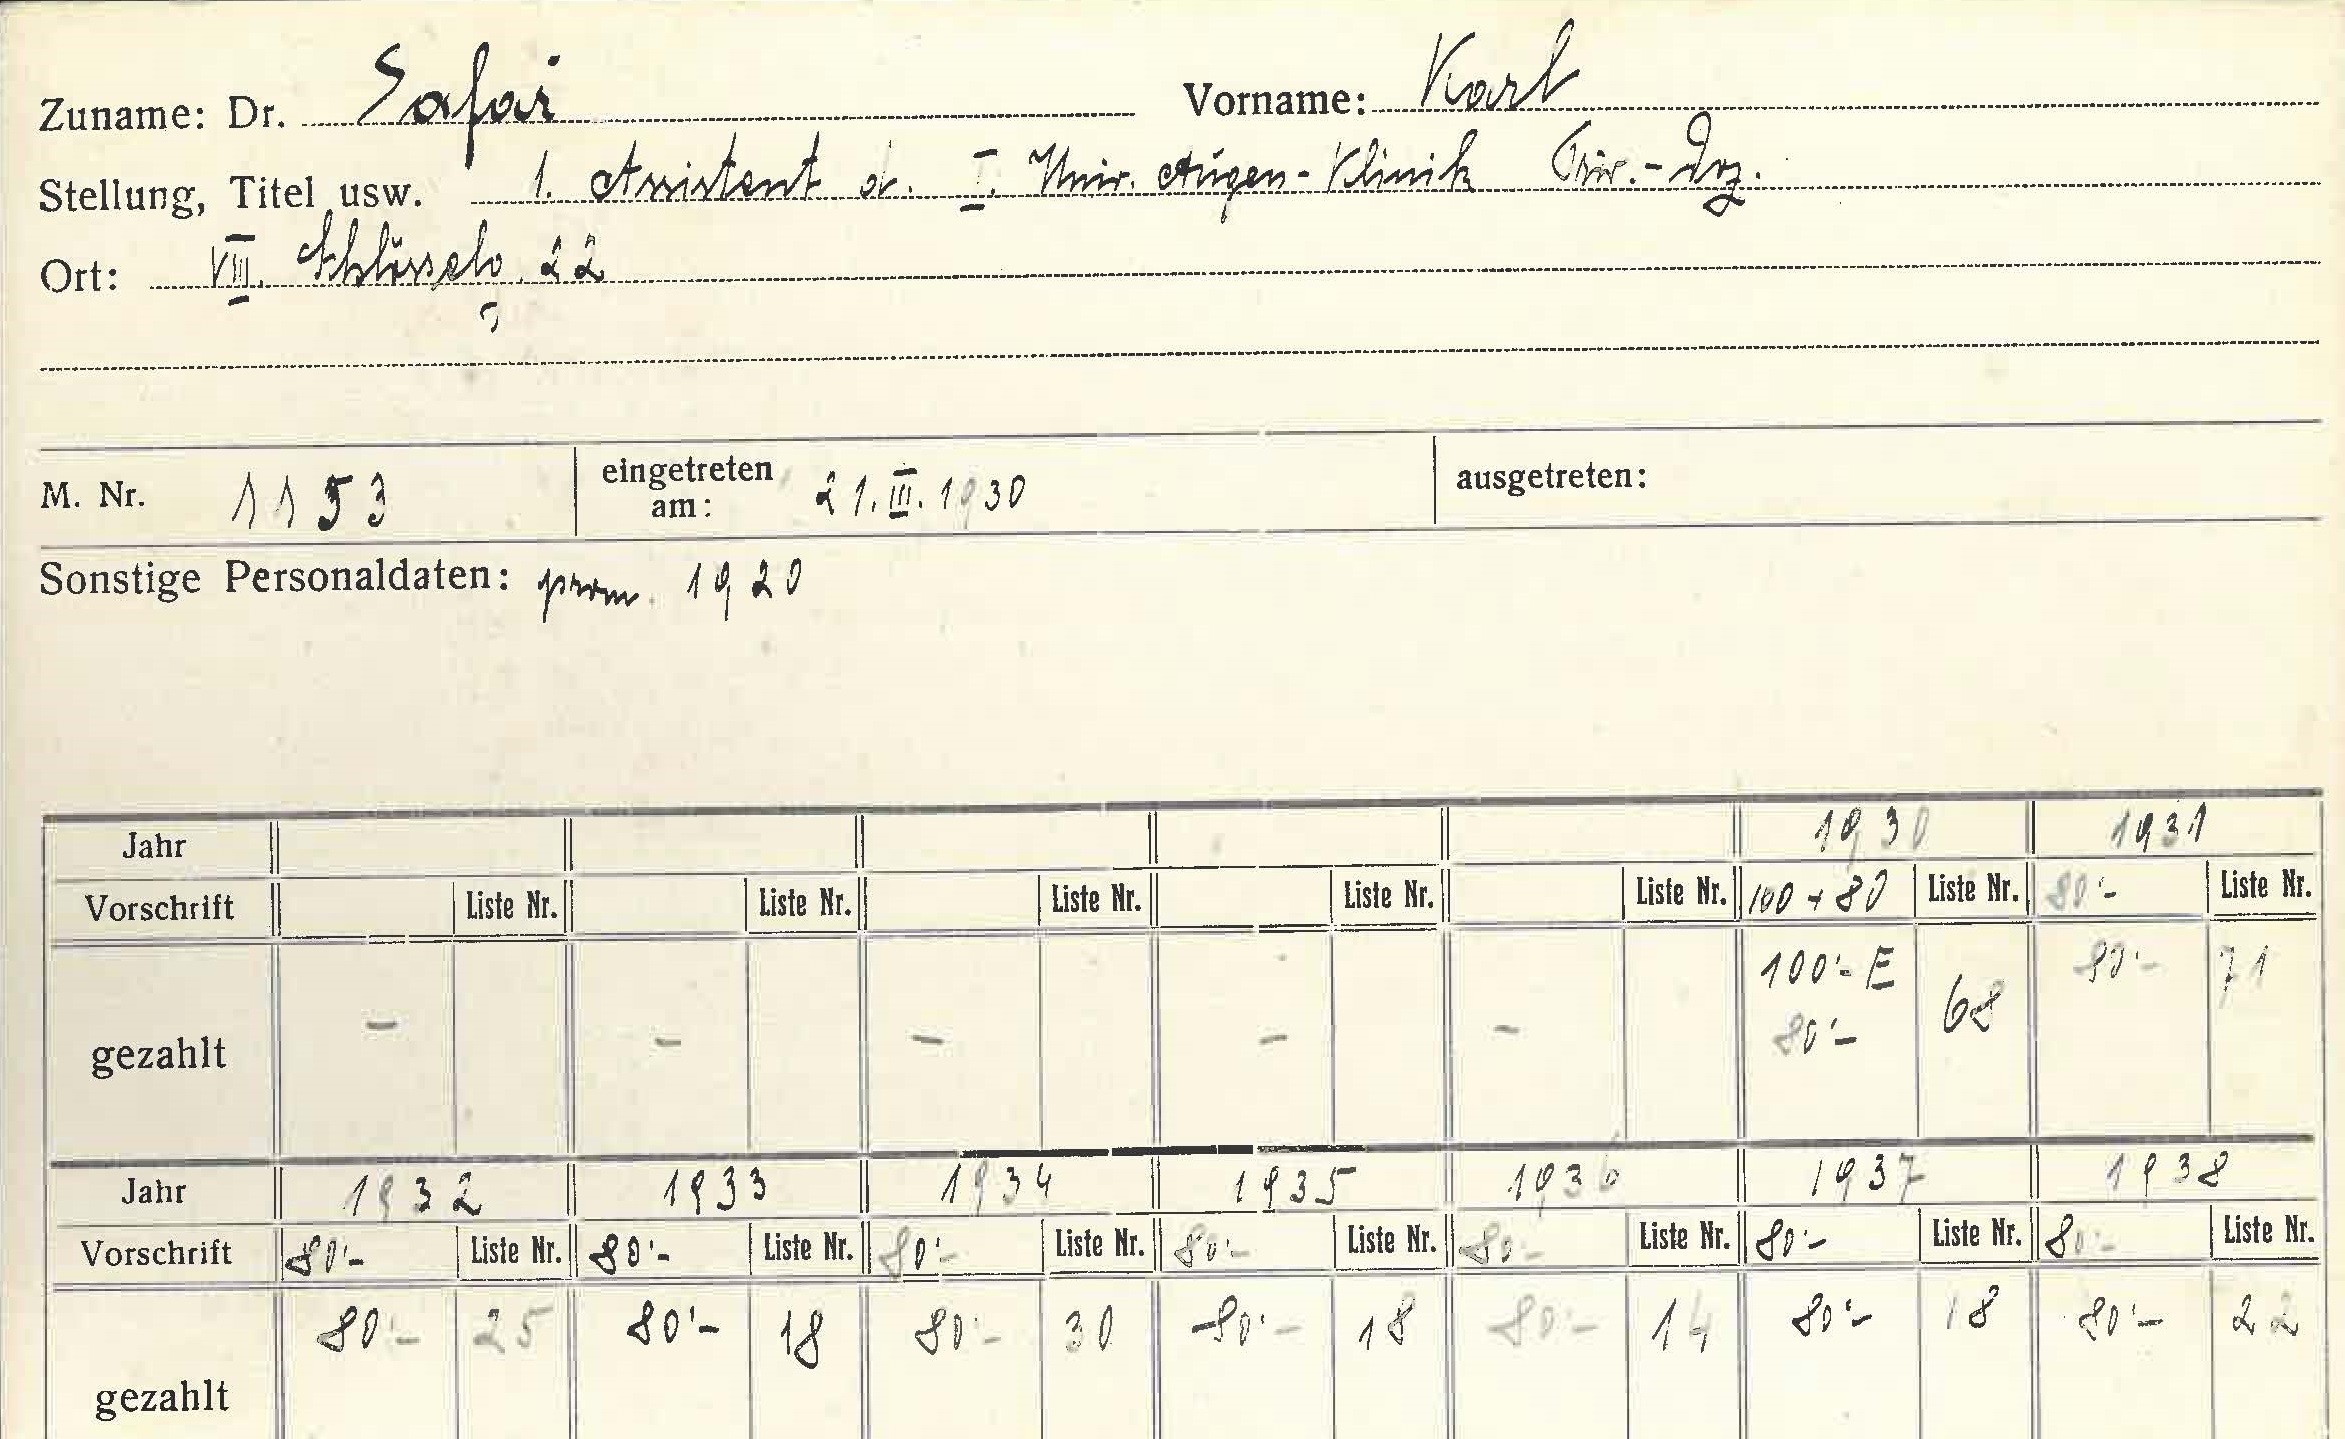 Zuname: Dr. Safar Vorname: Karl
Stellung, Titel usw. 1. Assistent d. I. Univ. Augen-Klinik Priv.-Doz.
Ort: VIII. Schlösselg. 22
M. Nr. 1153 eingetreten am: 21. III. 1930 ausgetreten:
Sonstige Personaldaten: prom. 1920
Jahr 1930 1931
Vorschrift Liste Nr. Liste Nr. Liste Nr. Liste Nr. Liste Nr. 100 + 80 Liste Nr. 80'- Liste Nr.
gezahlt - - - - - 100'- E 80'- 68 80'- 71
Jahr 1932 1933 1934 1935 1936 1937 1938
Vorschrift 80'- Liste Nr. 80'- Liste Nr. 80'- Liste Nr. 80'- Liste Nr. 80'- Liste Nr. 80'- Liste Nr. 80'- Liste Nr.
gezahlt 80'- 25 80'- 18 80'- 30 80'- 18 80'- 14 80'- 18 80'- 22